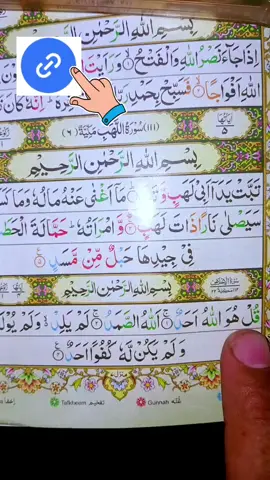 بِسْمِ اللّٰهِ الرَّحْمٰنِ الرَّ
اِذَا جَآءَ نَصْرُ اللّٰهِ وَالْفَتْحُ ۙ وَرَاَيْتَ
اللّٰهِ اَفْوَاجًا ۙ فَسَبِّحْ بِحَمْدِ اِنَّهٗ كَانَ
(١١١) سُوْرَةُ اللَّهَبِ مَكِّيَّةٌ (٦)
اٰيَاتُهَا ٥
بِسْمِ اللّٰهِ الرَّحْمٰنِ الرَّحِيْمِ
تَبَّتْ يَدَاۤ اَبِيْ لَهَبٍ وَّ مَاۤ اَغْنٰى عَنْهُ مَالُهٗ وَمَا
سَيَصْلٰى نَارًا ذَاتَ لَهَبٍ ۙ وَّ امْرَاَتُهٗ ؕ حَمَّالَةَ
فِيْ جِيْدِهَا حَبْلٌ مِّنْ مَّسَدٍ
بِسْمِ اللّٰهِ الرَّحْمٰنِ الرَّحِيْمِ
قُلْ هُوَ اللّٰهُ اَحَدٌ ۚ اَللّٰهُ الصَّمَدُ ۚ لَمْ يَلِدْ ۙ وَلَمْ
وَلَمْ يَكُنْ لَّهٗ كُفُوًا اَحَدٌ
Gunnah غُنّه Tafkheem تفخیم